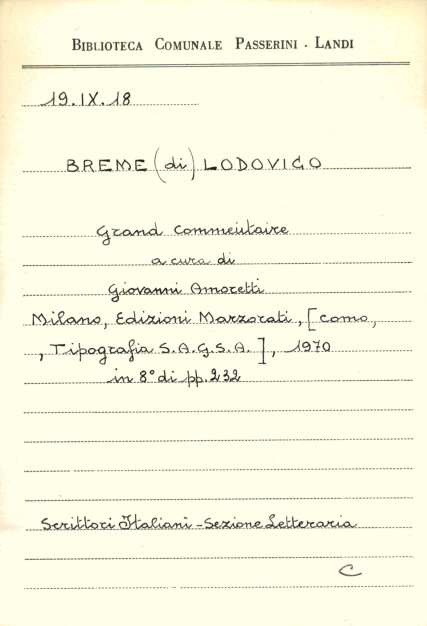 BIBLIOTECA COMUNALE PASSERINI - LANDI
19.IX.18
BREME (di) LODOVICO
Grand Commentaire
a cura di
Giovanni Amoretti
Milano, Edizioni Marzorati, [Como,
, Tipografia S.A.G.S.A.], 1970
in 8° di pp. 232
Scrittori Italiani - Sezione Letteraria
C